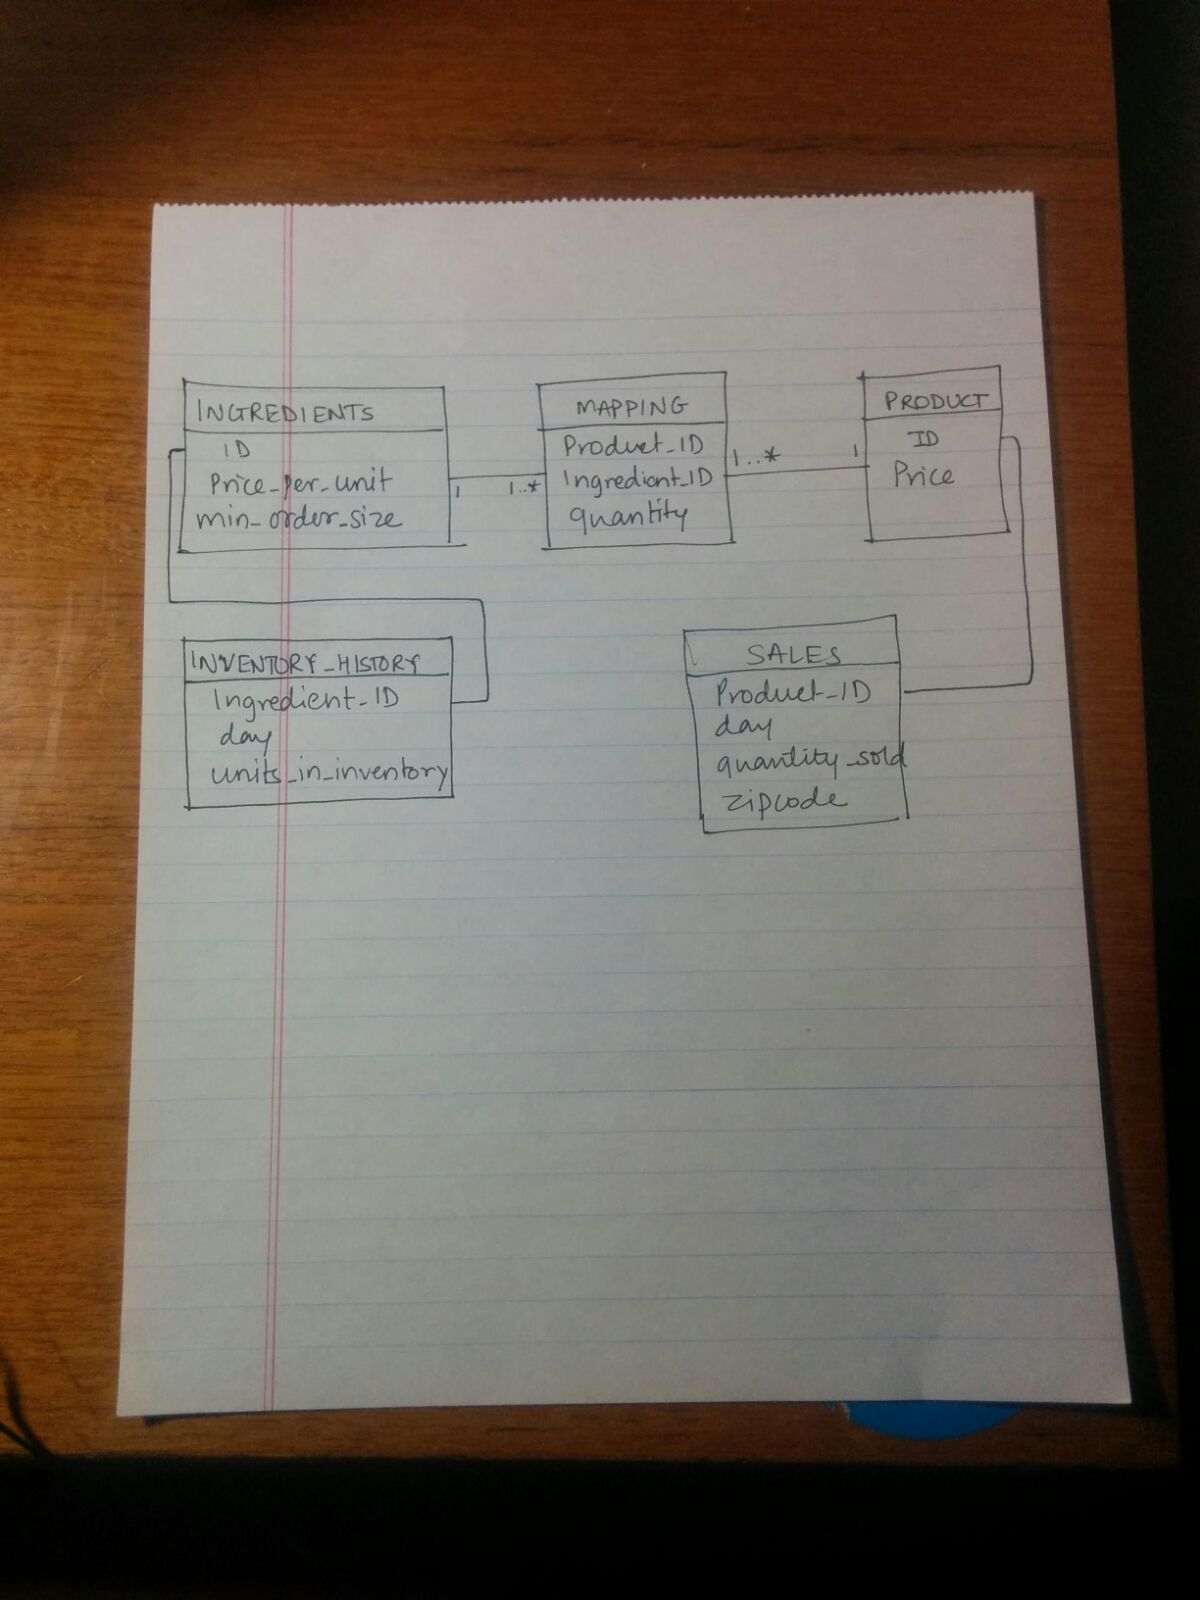 INGREDIENTS
ID
Price_per_unit
min_order_size
1
1..*
MAPPING
Product_ID
Ingredient_ID
quantity
1..*
1
PRODUCT
ID
Price
INVENTORY_HISTORY
Ingredient_ID
day
units_in_inventory
SALES
Product_ID
day
quantity_sold
zipcode